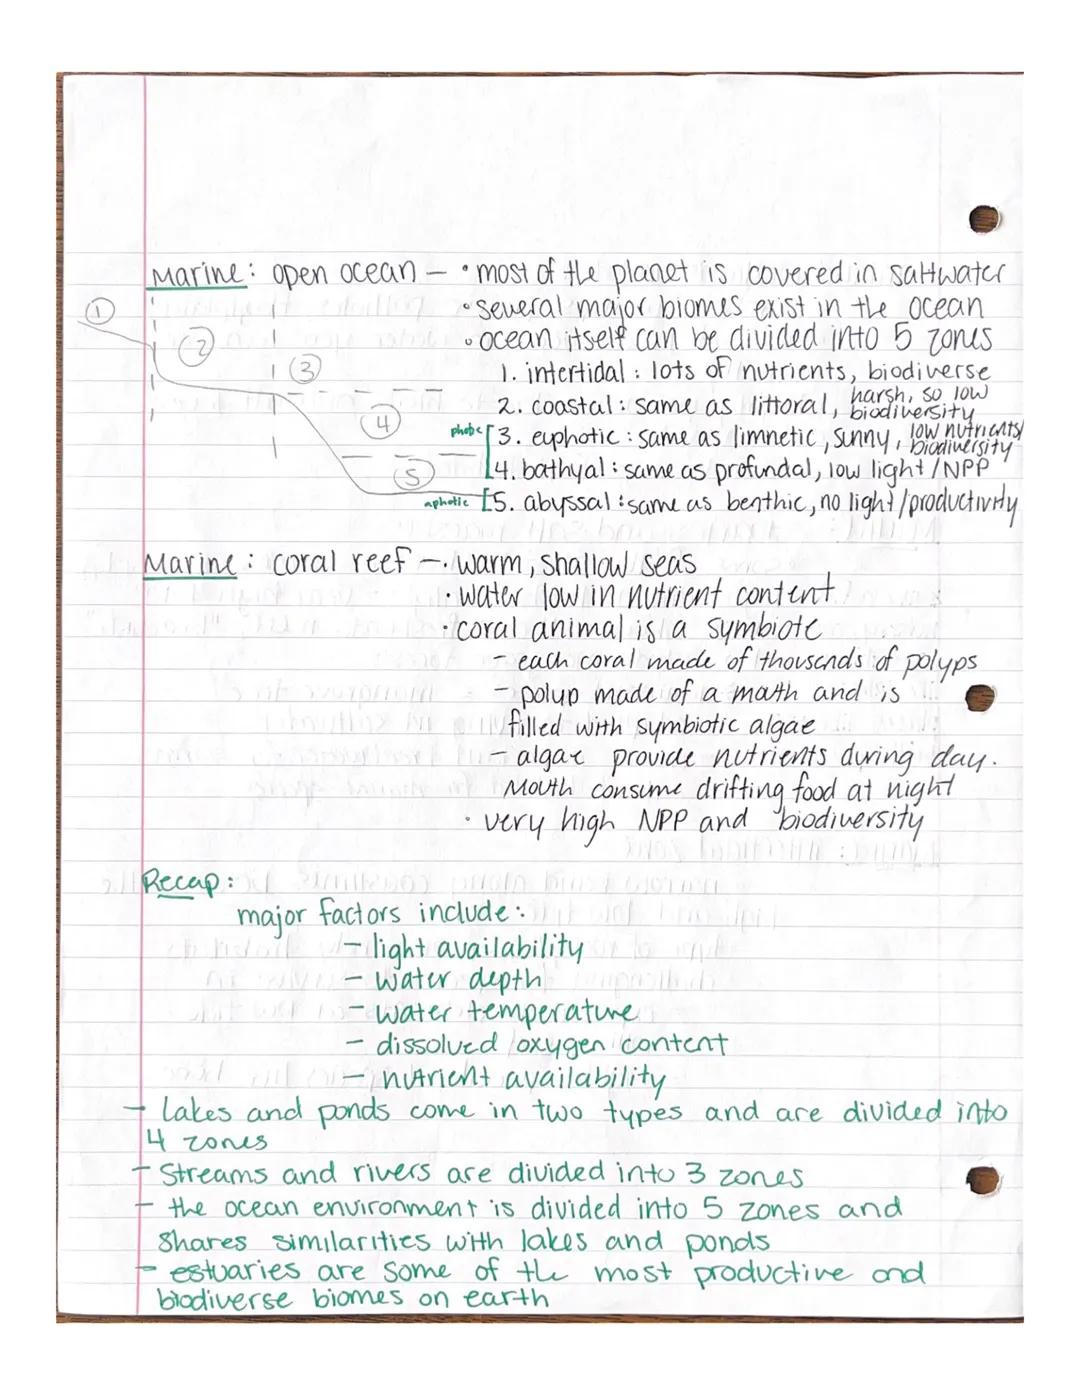 Marine: open ocean – • most of the planet is covered in saltwater
• several major biomes exist in the ocean
• ocean itself can be divided into 5 zones
1
2
3
4
5
1. intertidal: lots of nutrients, biodiverse
2. coastal: same as littoral, harsh, so low biodiversity
photic [3. euphotic: same as limnetic, sunny, low nutrients/biodiversity
4. bathyal: same as profundal, low light/NPP
aphotic [5. abyssal: same as benthic, no light/productivity
Marine: coral reef – • warm, shallow seas
• water low in nutrient content
• coral animal is a symbiote
– each coral made of thousands of polyps
– polyp made of a mouth and is
filled with symbiotic algae
– algae provide nutrients during day.
Mouth consume drifting food at night
• very high NPP and biodiversity
Recap:
major factors include:
– light availability
– water depth
– water temperature
– dissolved oxygen content
– nutrient availability
– Lakes and ponds come in two types and are divided into
4 zones
– Streams and rivers are divided into 3 zones
– the ocean environment is divided into 5 zones and
shares similarities with lakes and ponds
– estuaries are some of the most productive and
biodiverse biomes on earth